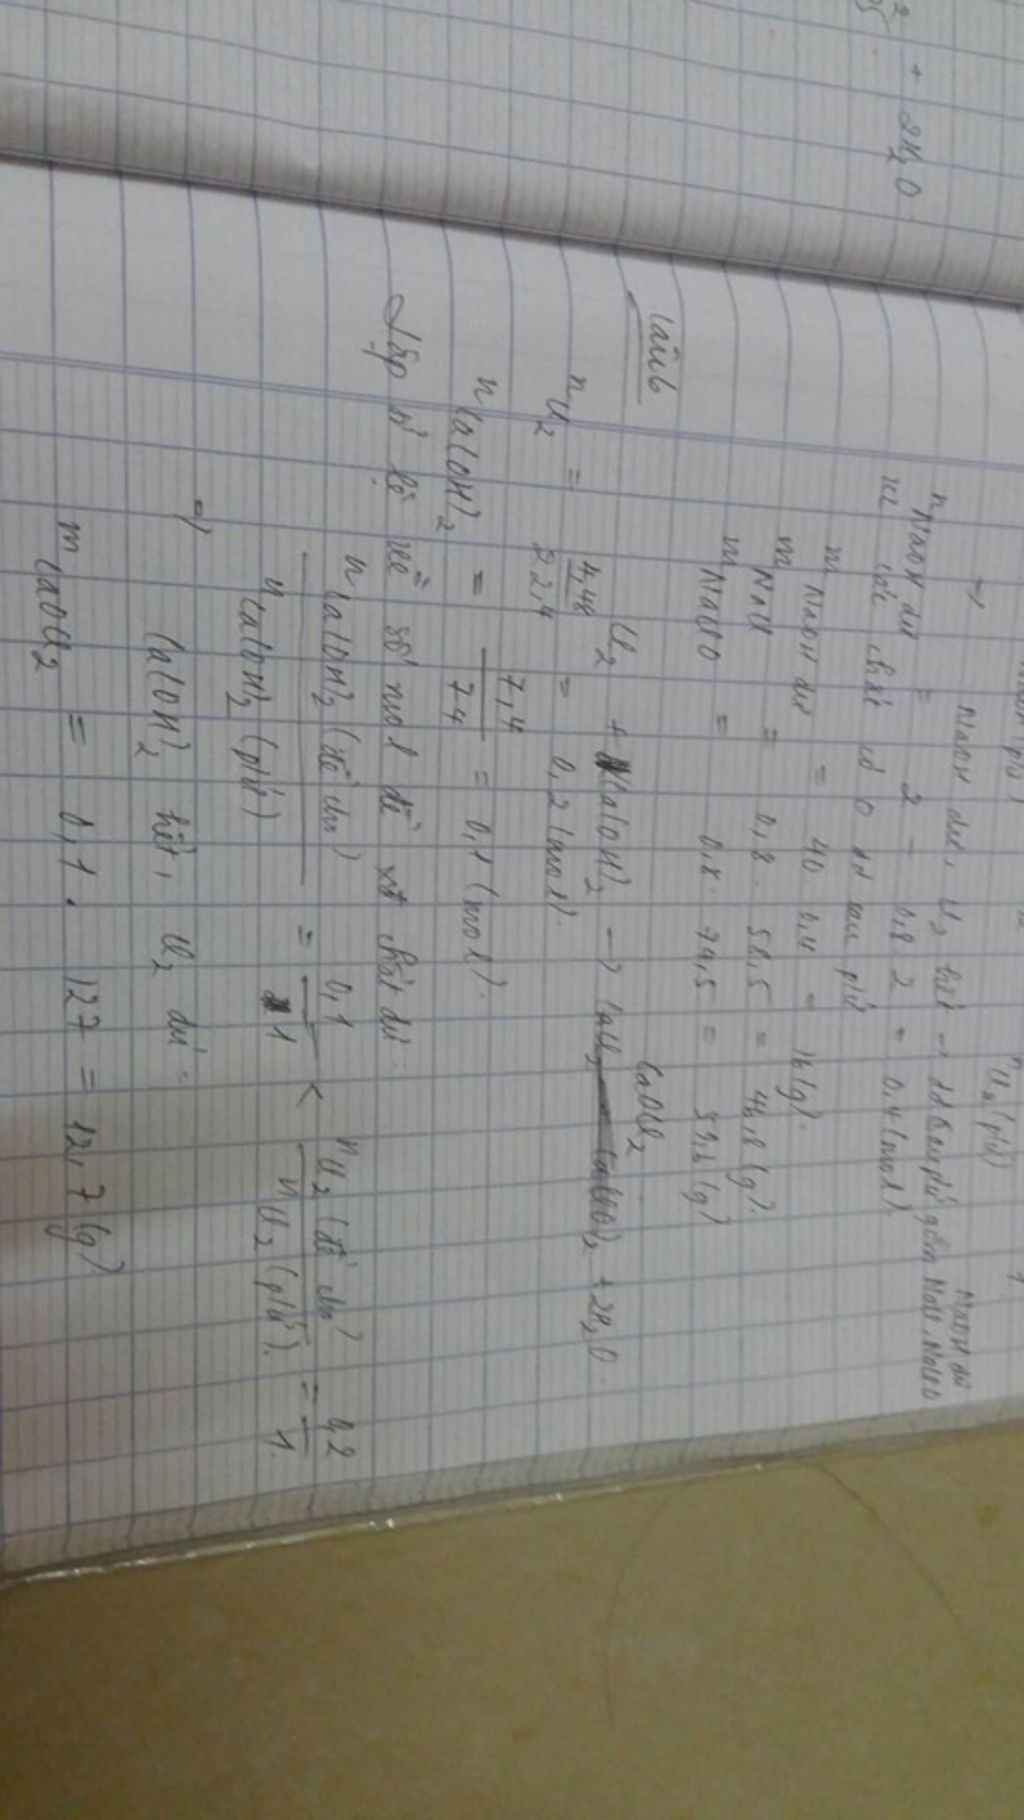 + 2H₂O
→ NaOH dư, Cl₂ hết → dd sau pư gồm NaCl, NaClO
NaOH dư
n NaOH dư = 2 - 0,8.2 = 0,4 (mol).
các chất có ở dd sau pư
m NaOH dư = 40.0,4 = 16 (g).
m NaCl = 0,8.58,5 = 46,8 (g).
m NaClO = 0,8.74,5 = 59,6 (g)
Câu 6
CaOCl₂
Cl₂ + Ca(OH)₂ → CaCl₂ + 2H₂O.
n Cl₂ = 4,48 / 22,4 = 0,2 (mol).
n Ca(OH)₂ = 7,4 / 74 = 0,1 (mol).
Lập tỉ lệ về số mol để xét chất dư.
n Ca(OH)₂ (đề cho) / n Ca(OH)₂ (pư) = 0,1 / 1 < n Cl₂ (đề cho) / n Cl₂ (pư). = 0,2 / 1.
=> Ca(OH)₂ hết, Cl₂ dư.
m CaOCl₂ = 0,1. 127 = 12,7 (g)